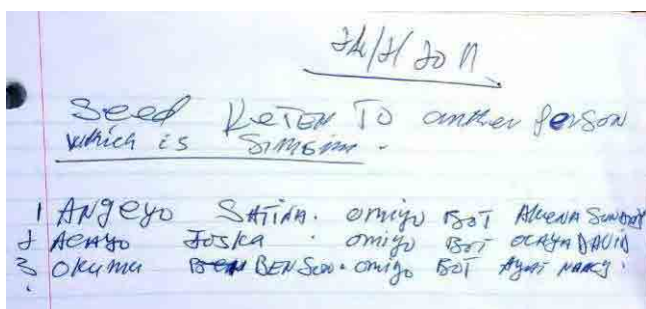 Seed Keten To another person
which is Simsim.
1 Angeyo Satina. omiyo Bot Akena Sunday
2 Acayo Joska . omiyo Bot Ocaya David
3 Okumu Benson. omiyo Bot Ayat Nancy.